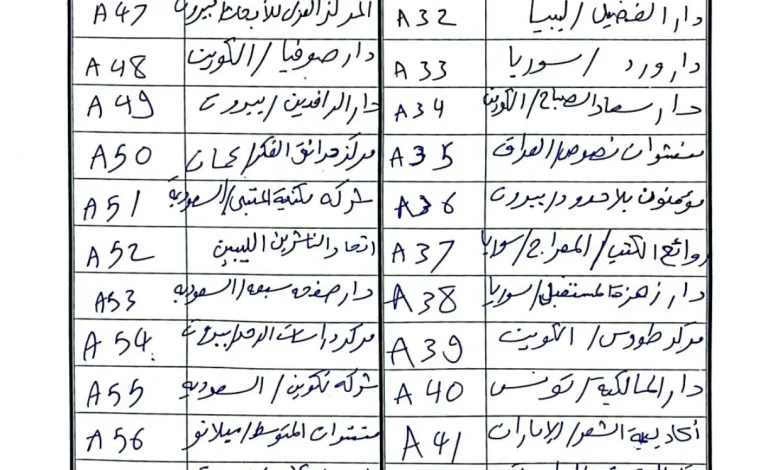 دار الفضيل / ليبيا A 32
دار ورد / سوريا A 33
دار سعاد الصباح / الكويت A 34
منشورات نصوص / العراق A 35
مؤمنون بلا حدود / بيروت A 36
روائع الكتب / المعراج / سوريا A 37
دار زهرة المستقبل / سوريا A 38
مركز طروس / الكويت A 39
دار المالكية / تونس A 40
أكاديمية الشعر / الإمارات A 41
المركز العربي للأبحاث بيروت A 47
دار صوفيا / الكويت A 48
دار الرافدين / بيروت A 49
مركز حدائق الفكر / عمان A 50
شركة مكتبة المتنبي / السعودية A 51
اتحاد الناشرين الليبين A 52
دار صفحة سبعة / السعودية A 53
مركز دراسات الوحدة / بيروت A 54
شركة تكوين / السعودية A 55
منشورات المتوسط / ميلانو A 56